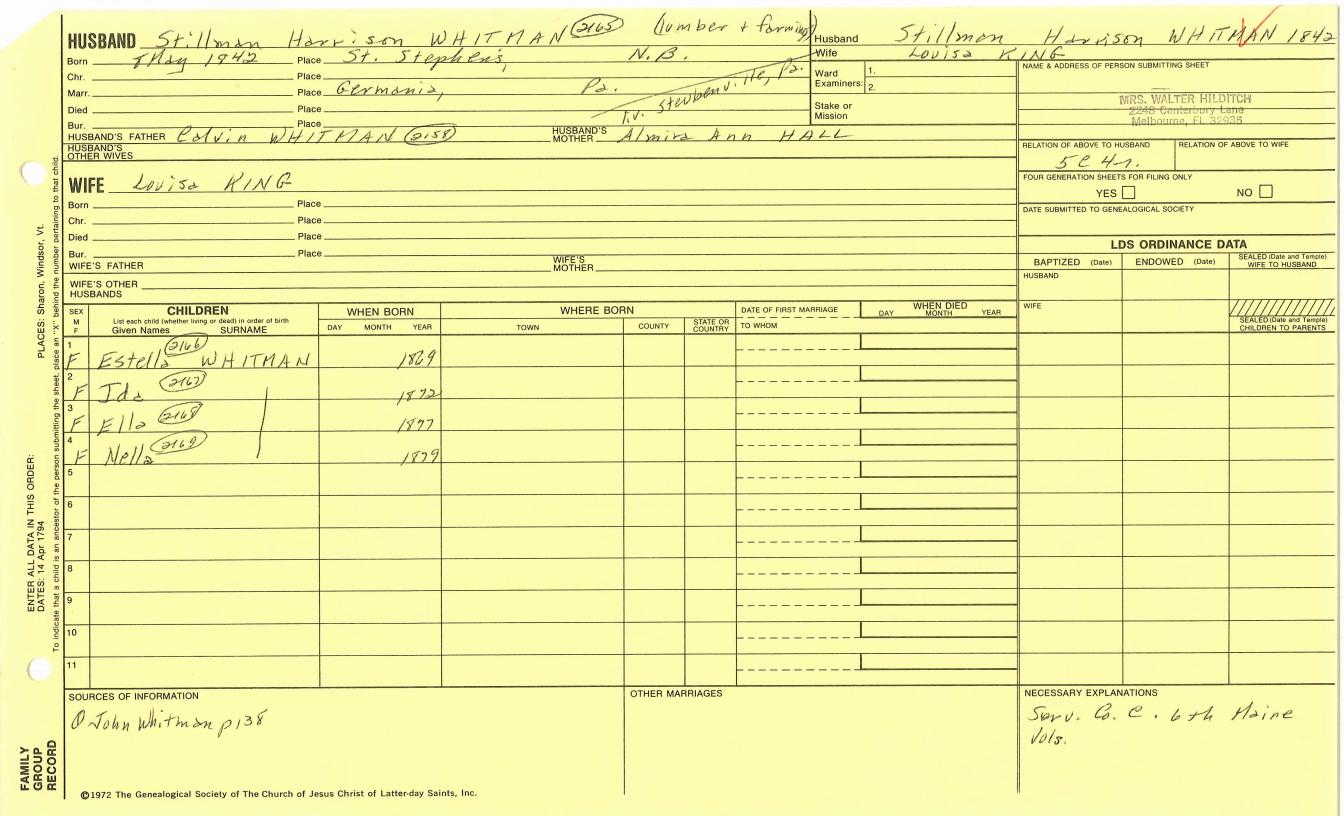 HUSBAND Stillman Harrison WHITMAN 2165 (lumber + farming)
Born May 1842 Place St. Stephens, N.B.
Chr. Place
Marr. Place Germania, Pa.
Died Place lv. Steubenville, Pa.
Bur. Place
HUSBAND'S FATHER Calvin WHITMAN 2158 HUSBAND'S MOTHER Almira Ann HALL
HUSBAND'S OTHER WIVES
WIFE Louisa KING
Born Place
Chr. Place
Died Place
Bur. Place
WIFE'S FATHER WIFE'S MOTHER
WIFE'S OTHER HUSBANDS
Husband Stillman Harrison WHITMAN 1842
Wife Louisa KING
Ward Examiners: 1.
2.
Stake or Mission
NAME & ADDRESS OF PERSON SUBMITTING SHEET
MRS. WALTER HILDITCH
2248 Canterbury Lane
Melbourne, FL 32935
RELATION OF ABOVE TO HUSBAND RELATION OF ABOVE TO WIFE
5C 4r.
FOUR GENERATION SHEETS FOR FILING ONLY
YES NO
DATE SUBMITTED TO GENEALOGICAL SOCIETY
LDS ORDINANCE DATA
BAPTIZED (Date) ENDOWED (Date) SEALED (Date and Temple) WIFE TO HUSBAND
HUSBAND
WIFE
SEALED (Date and Temple) CHILDREN TO PARENTS
SEX M F
CHILDREN
List each child (whether living or dead) in order of birth
Given Names SURNAME
WHEN BORN
DAY MONTH YEAR
WHERE BORN
TOWN COUNTY STATE OR COUNTRY
DATE OF FIRST MARRIAGE
TO WHOM
WHEN DIED
DAY MONTH YEAR
1 F Estella 2166 WHITMAN 1869
2 F Ida 2167 1872
3 F Ella 2168 1877
4 F Nella 2169 1879
5
6
7
8
9
10
11
SOURCES OF INFORMATION
John Whitman p138
OTHER MARRIAGES
NECESSARY EXPLANATIONS
Serv. Co. C. 6th Maine
Vols.
©1972 The Genealogical Society of The Church of Jesus Christ of Latter-day Saints, Inc.
FAMILY
GROUP
RECORD
ENTER ALL DATA IN THIS ORDER:
DATES: 14 Apr 1794
PLACES: Sharon, Windsor, Vt.
To indicate that a child is an ancestor of the person submitting the sheet, place an "X" behind the number pertaining to that child.